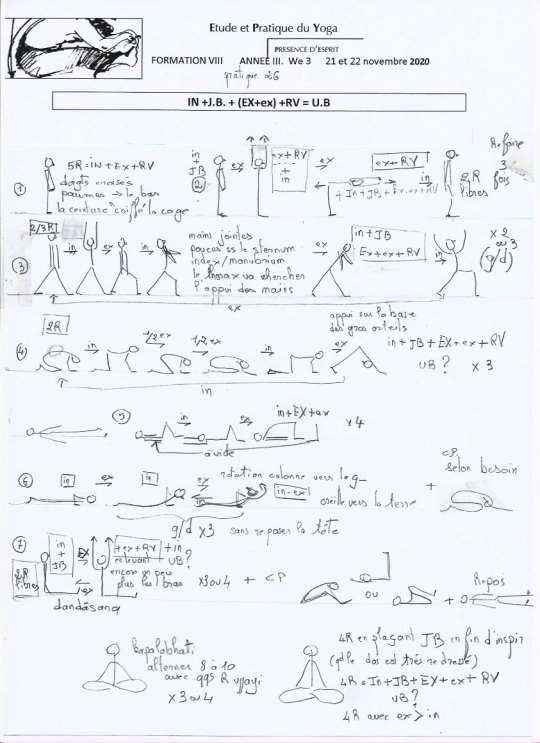 Etude et Pratique du Yoga
PRESENCE D'ESPRIT
FORMATION VIII ANNEE III. We 3 21 et 22 novembre 2020
pratique 26
IN +J.B. + (EX+ex) +RV = U.B
Refaire
3
fois
1
5R = IN + EX + RV
doigts croisés
paumes → le bas
la ceinture "coiffé" la cage
2
in
+
JB
ex
ex + RV
+
in
ex
ex + RV
+ In + JB + Ex + ex + RV
in
2R
libres
3
2/3R
in
ex
in
mains jointes
pouces ss le sternum
index/manubrium
le thorax va chercher
l'appui des mains
ex
in + JB
Ex + ex + RV
in
x 2
ou 3
(g/d)
ex
4
2R
in
1/2 ex
1/2 ex
in
ex
appui sur la base
des gros orteils
in + JB + EX + ex + RV
UB ? x 3
in
5
in
ex
in + EX + ex
x 4
à vide
6
in
ex
in
ex
rotation colonne vers la g
in - ex
oreille vers la terre
g/d x 3 sans reposer la tête
+
CP
selon besoin
7
2R
libres
in
+
JB
EX
ex
+ ex + RV
+ in
en levant UB ?
encore un peu
plus les bras
x 3 ou 4 + CP
dandāsana
ou
+
Repos
kapalabhati
alterner 8 à 10
avec qqs R ujjayi
x 3 ou 4
4R en plaçant JB en fin d'inspir
(où le dos est très redressé)
4R = In + JB + EX + ex + RV
UB ?
4R avec ex > in